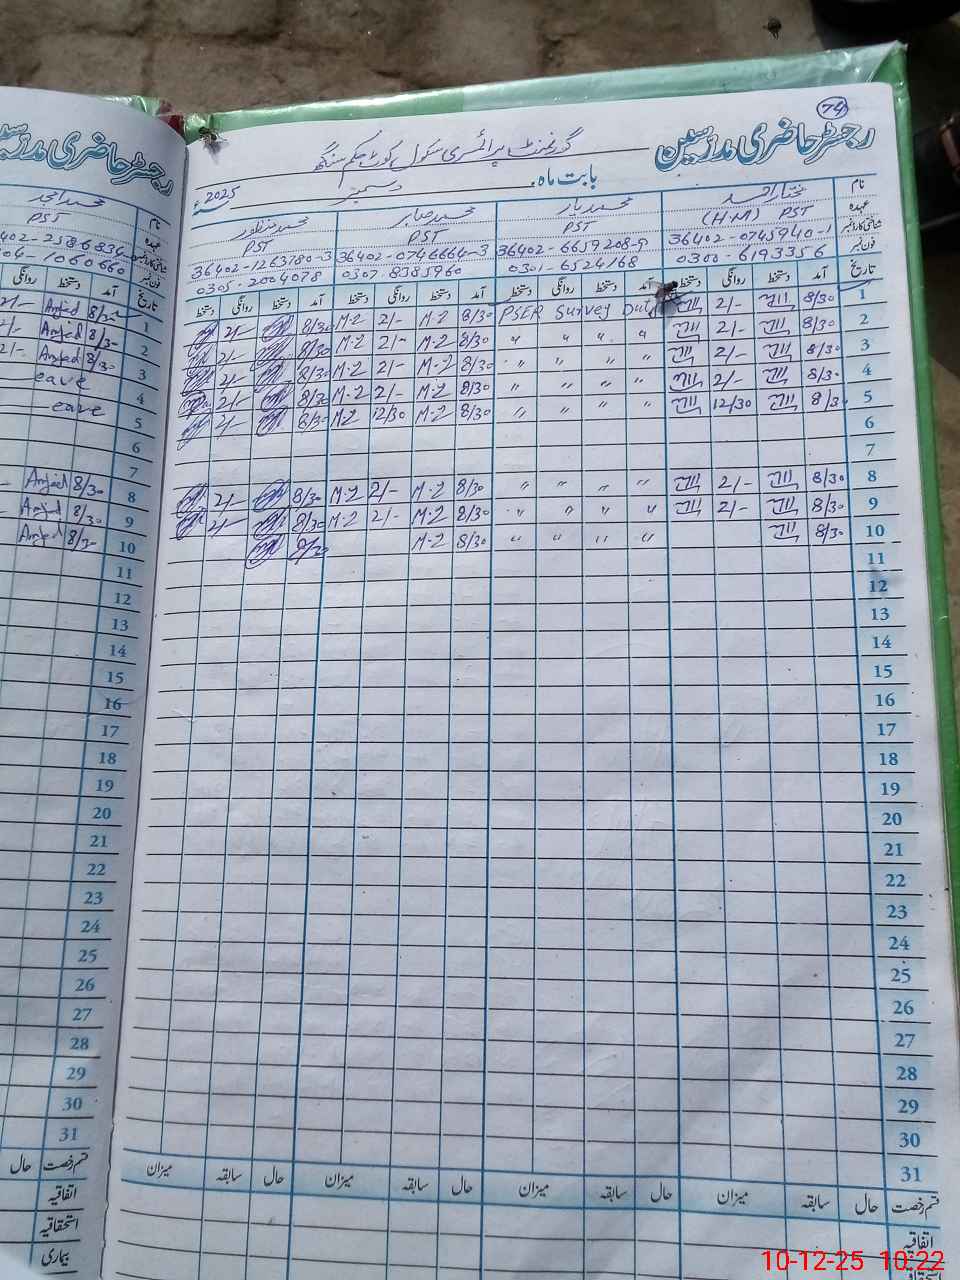 74
رجسٹر حاضری مدرسین
گورنمنٹ پرائمری سکول کوٹ حکم سنگھ
بابت ماہ دسمبر 2025ء
نام مختار احمد محمد دیار محمد صابر محمد منظور
عہدہ PST (HM) PST PST PST
شناختی کارڈ نمبر 36402-0745940-1 36402-6659208-9 36402-0746664-3 36402-1263180-3
فون نمبر 0300-6193356 0301-6524168 0307-8385960 0305-2004078
تاریخ آمد دستخط روانگی دستخط آمد دستخط روانگی دستخط آمد دستخط روانگی دستخط آمد دستخط روانگی دستخط
1 8/30 2/- PSER Survey Duty 8/30 M-2 2/- M-2 8/30 2/-
2 8/30 2/- " " " " 8/30 M-2 2/- M-2 8/30 2/-
3 8/30 2/- " " " " 8/30 M-2 2/- M-2 8/30 2/-
4 8/30 2/- " " " " 8/30 M-2 2/- M-2 8/30 2/-
5 8/30 12/30 " " " " 8/30 M-2 12/30 M-2 8/30
6
7
8 8/30 2/- " " " " 8/30 M-2 2/- M-2 8/30 2/-
9 8/30 2/- " " " " 8/30 M-2 2/- M-2 8/30 2/-
10 8/30 " " " " 8/30 M-2
11
12
13
14
15
16
17
18
19
20
21
22
23
24
25
26
27
28
29
30
31
قسم رخصت حال سابقہ میزان حال سابقہ میزان حال سابقہ میزان حال سابقہ میزان
اتفاقیہ
استحقاقیہ
رجسٹر حاضری مدرسین
نام محمد امجد
عہدہ PST
402-2586836
04-1060660
تاریخ آمد دستخط روانگی
1 8/30 Amjad 2/-
2 8/30 Amjad 2/-
3 8/30 Amjad 2/-
4 eave
5 eave
6
7
8 8/30 Amjad
9 8/30 Amjad
10 8/30 Amjad
11
12
13
14
15
16
17
18
19
20
21
22
23
24
25
26
27
28
29
30
31
قسم رخصت حال
اتفاقیہ
استحقاقیہ
بیماری
10-12-25 10:22